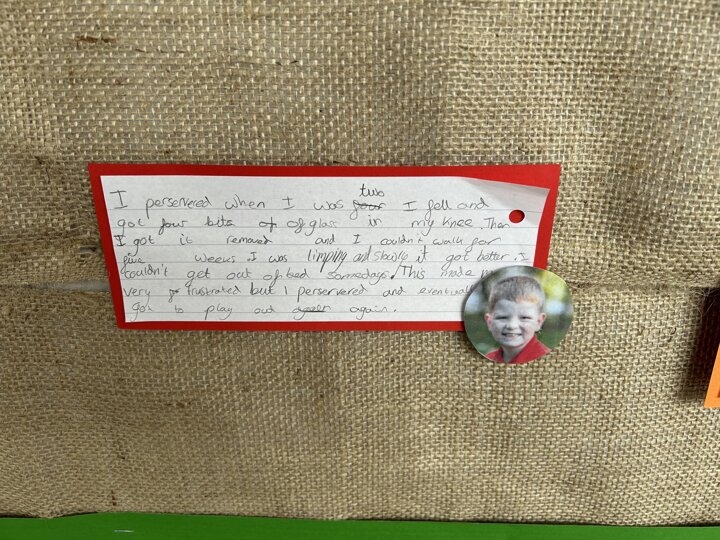 two
I perservered when I was four I fell and
got four bits of of glass in my knee. Then
I got it removed and I couldn't walk for
five weeks. I was limping and slowly it got better. I
couldn't get out of bed somedays. This made
very frustrated but I perservered and
got to play out again.